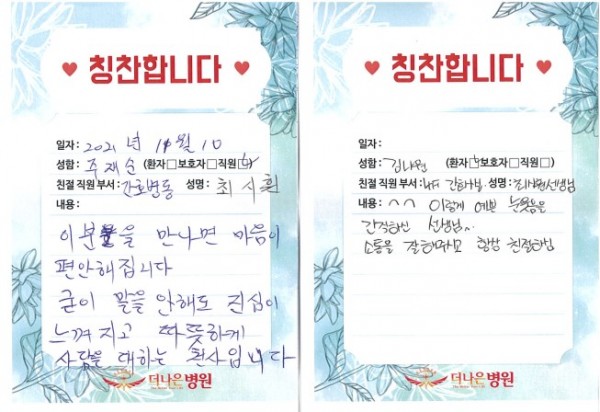 ♥ 칭찬합니다 ♥
일자: 2021 년 11월 10
성함: 주재순 (환자□보호자□직원□)
친절 직원 부서: 간호병동 성명: 최시훈
내용:
이분을 만나면 마음이
편안해집니다
굳이 말을 안해도 진심이
느껴지고 따뜻하게
사람을 대하는 천사입니다
더나은병원
♥ 칭찬합니다 ♥
일자:
성함: 김나원 (환자□보호자□직원□)
친절 직원 부서: 성명:
내용: ^^ 이렇게 예쁜 눈웃음을
간직하신 선생님..
소통을 잘 항상 친절하심
더나은병원